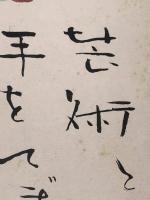 芸術と
手をてぎ